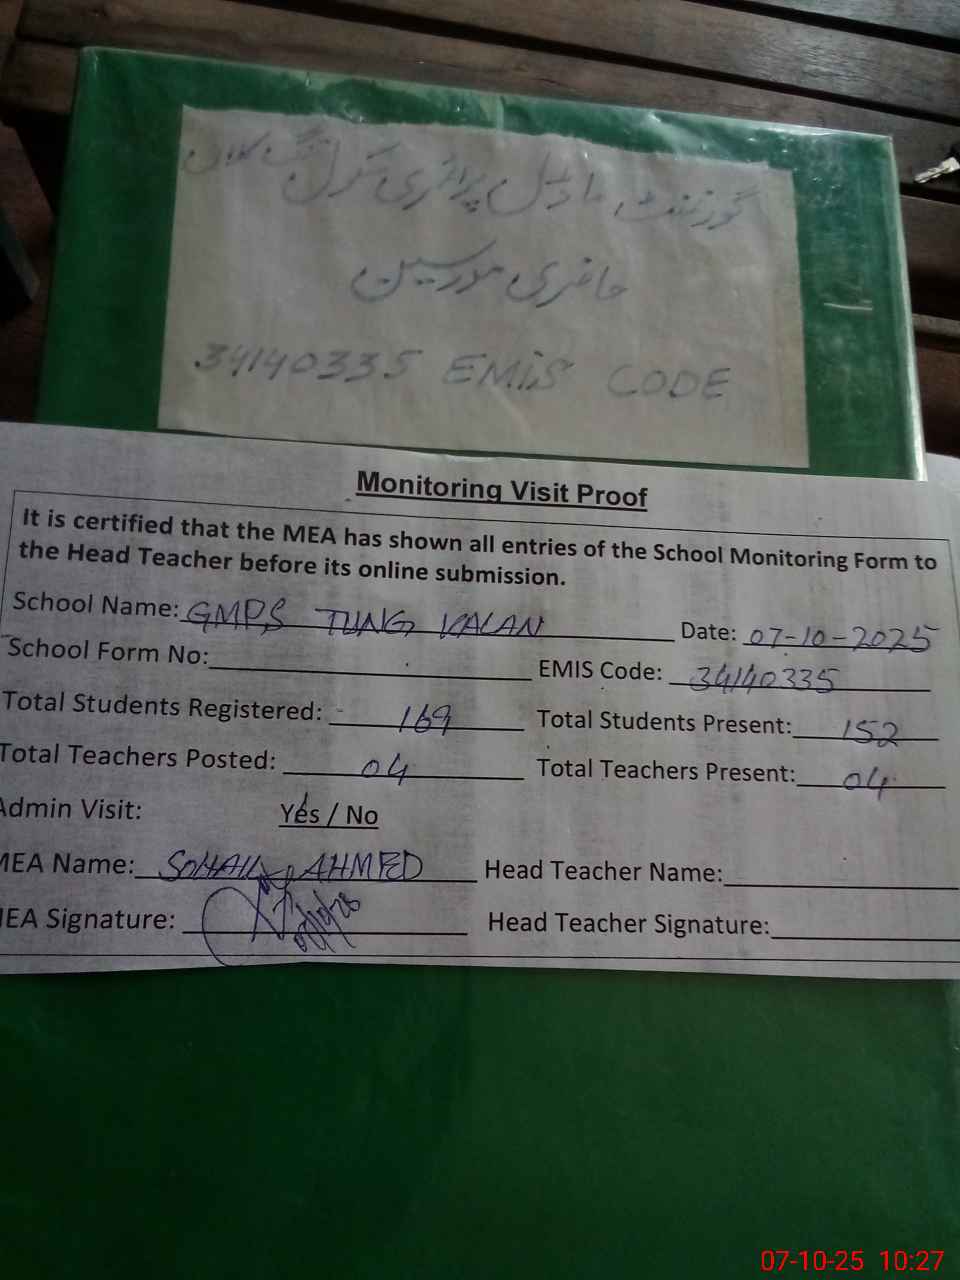 گورنمنٹ ماڈل پرائمری سکول تنگ کلاں
حاضری مدرسین
34140335 EMiS CODE
Monitoring Visit Proof
It is certified that the MEA has shown all entries of the School Monitoring Form to
the Head Teacher before its online submission.
School Name: GMPS TUNG KALAN Date: 07-10-2025
School Form No: EMIS Code: 34140335
Total Students Registered: 169 Total Students Present: 152
Total Teachers Posted: 04 Total Teachers Present: 04
Admin Visit: Yes / No
MEA Name: SOHAIL AHMED Head Teacher Name:
MEA Signature: Head Teacher Signature:
07-10-25 10:27